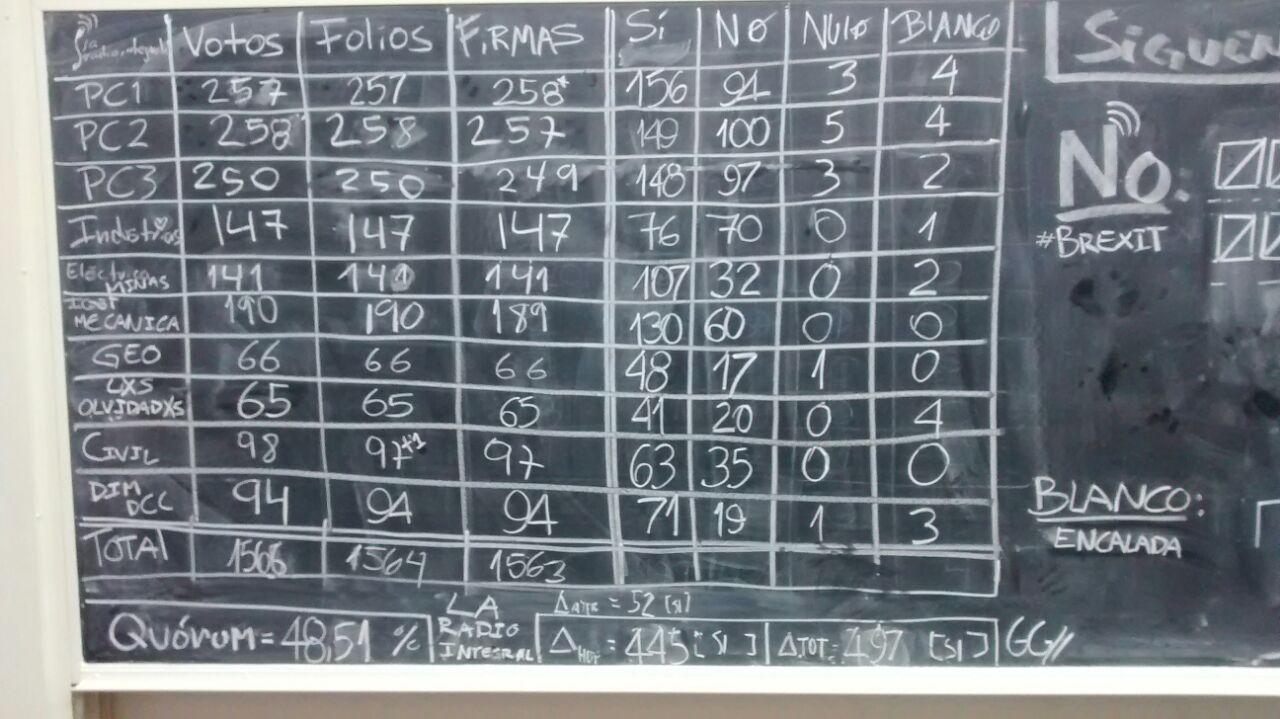 Votos Folios FIRMAS Sí NO NULO BLANCO
PC1 257 257 258* 156 94 3 4
PC2 258 258 257 149 100 5 4
PC3 250 250 249 148 97 3 2
Industrias 147 147 147 76 70 0 1
Eléctrica MINAS 141 141 141 107 32 0 2
MECANICA 190 190 189 130 60 0 0
GEO 66 66 66 48 17 1 0
LXS OLVIDADXS 65 65 65 41 20 0 4
CIVIL 98 97+1 97 63 35 0 0
DIM DCC 94 94 94 71 19 1 3
TOTAL 1566 1564 1563
Quórum = 48,51 %
LA RADIO INTEGRAL
= 52 [SI]
Δ HOY = 445 [SI]
ΔTOT = 497 [SI]
GG//
SíGUEN
No:
#BREXIT
BLANCO:
ENCALADA